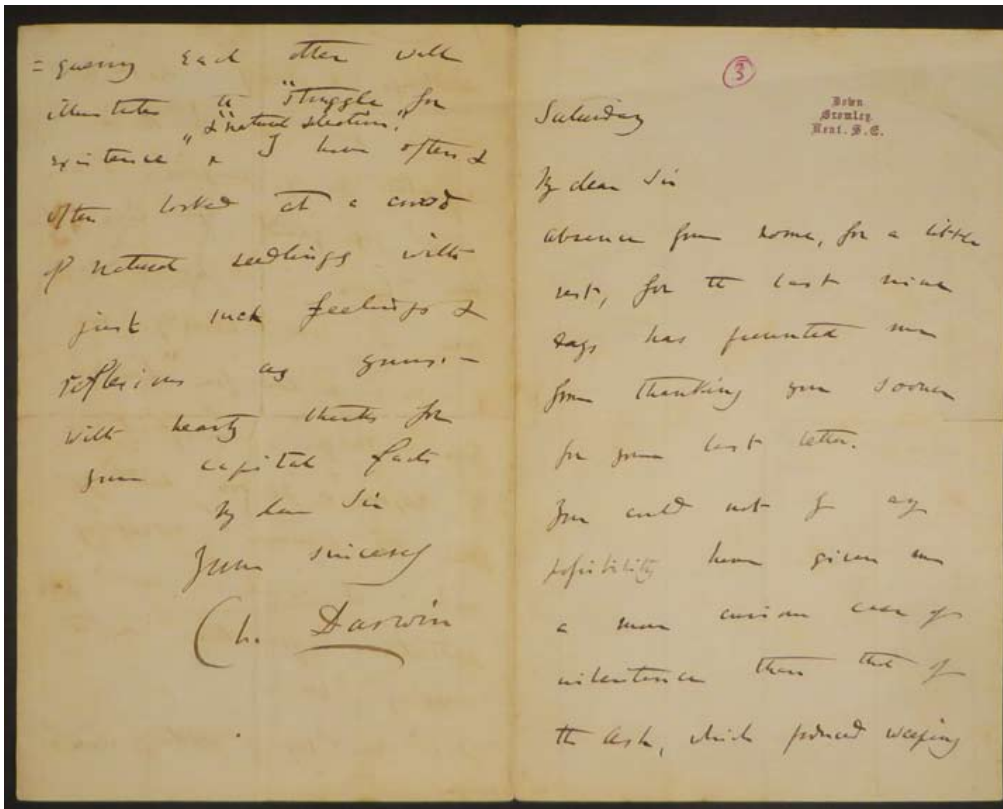 =quering each other well
illustrates the "struggle for
"& natural selection,"
existence & I have often &
often looked at a crowd
of natural seedlings with
just such feelings &
reflexions as yours.—
With hearty thanks for
your capital facts
My dear Sir
Yours sincerely
Ch. Darwin
3
Down.
Bromley.
Kent. S.E.
Saturday
My dear Sir
absence from home, for a little
rest, for the last nine
days has prevented me
from thanking you sooner
for your last letter.
You could not by any
possibility have given me
a more curious case of
inheritance than that of
the Ash, which produced weeping